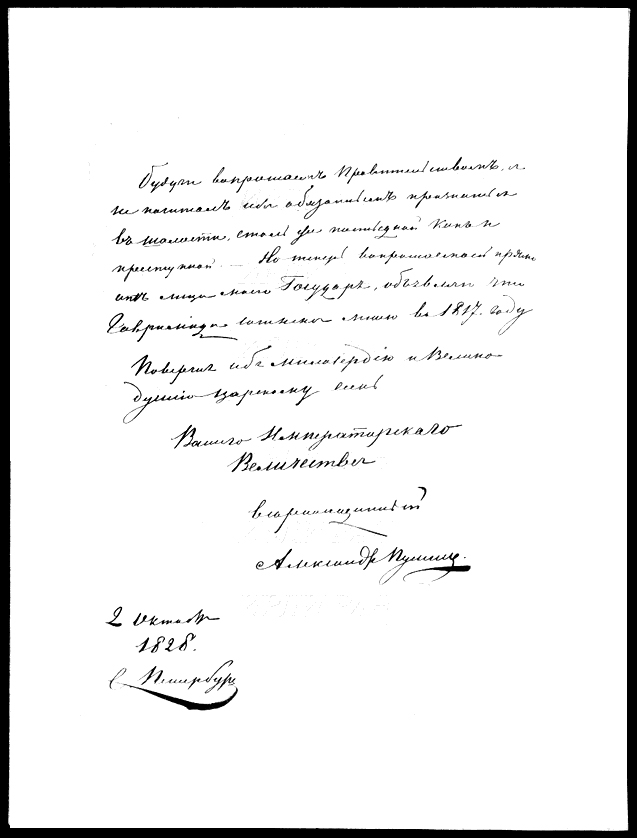 Будучи вопрошаем Правительством, я
не почитал себя обязанным признаться
в шалости, столь же постыдной как и
преступной. — Но теперь вопрошаемый прямо
от лица моего Государя, объявляю что
Гаврилиада сочинена мною в 1817 году
Повергая себя милосердію и велико
душію царскому есмь
Вашего Императорскаго
Величества
верноподданный
Александр Пушкин.
2 октября
1828.
С Петербург